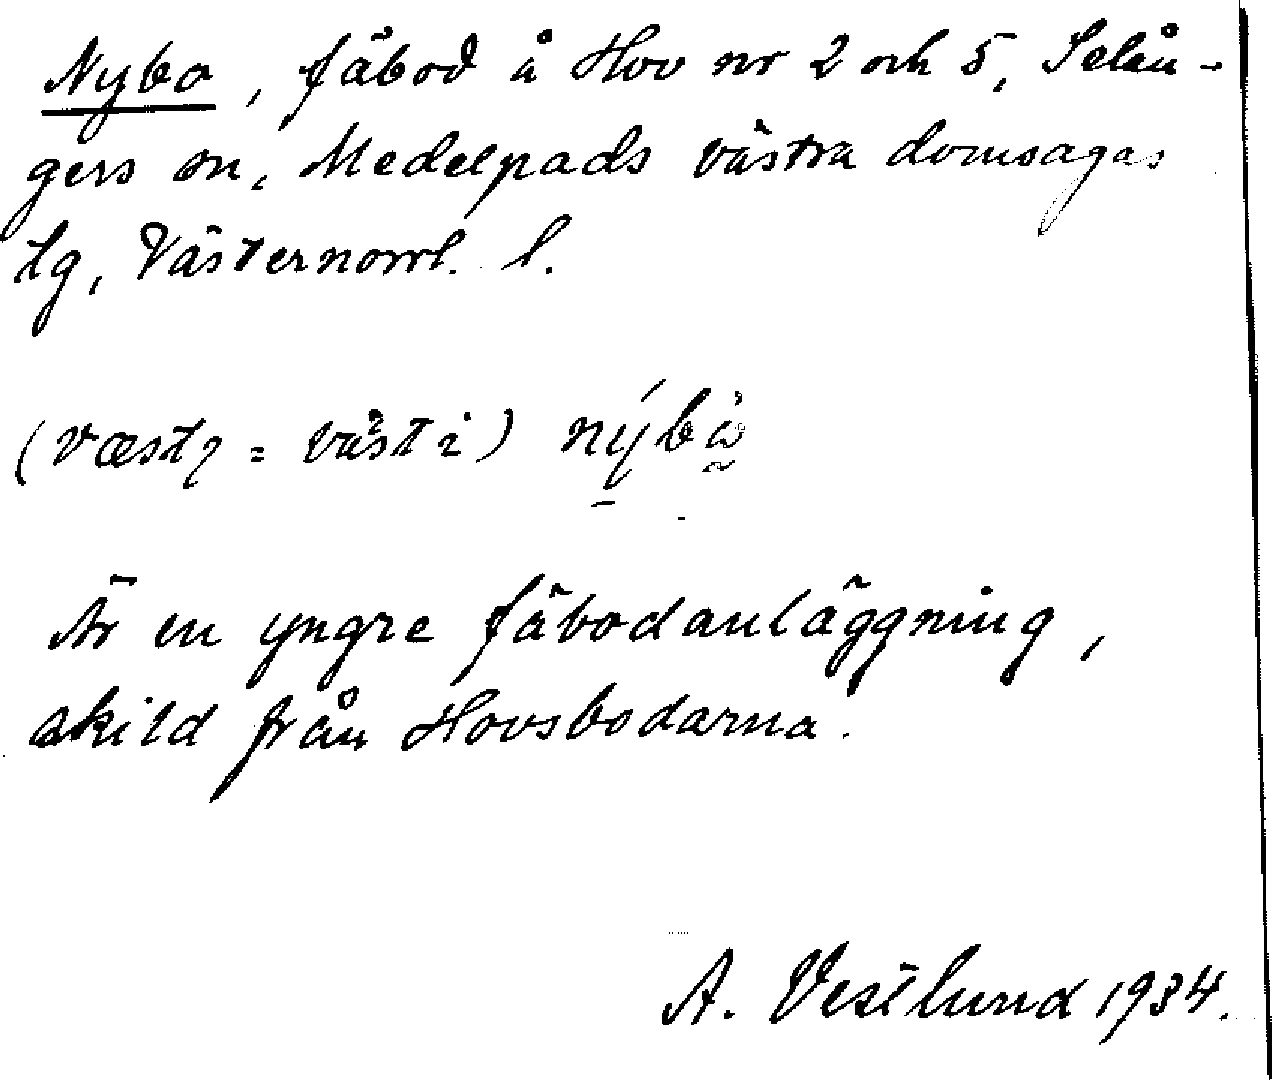 Nybo, fäbod å Hov nr 2 och 5, Selån-
gers sn, Medelpads västra domsagas
tg, Västernorrl. l.
(væstɩ = väst i) nýbὼ
Är en yngre fäbodanläggning,
skild från Hovsbodarna.
A. Vestlund 1934.